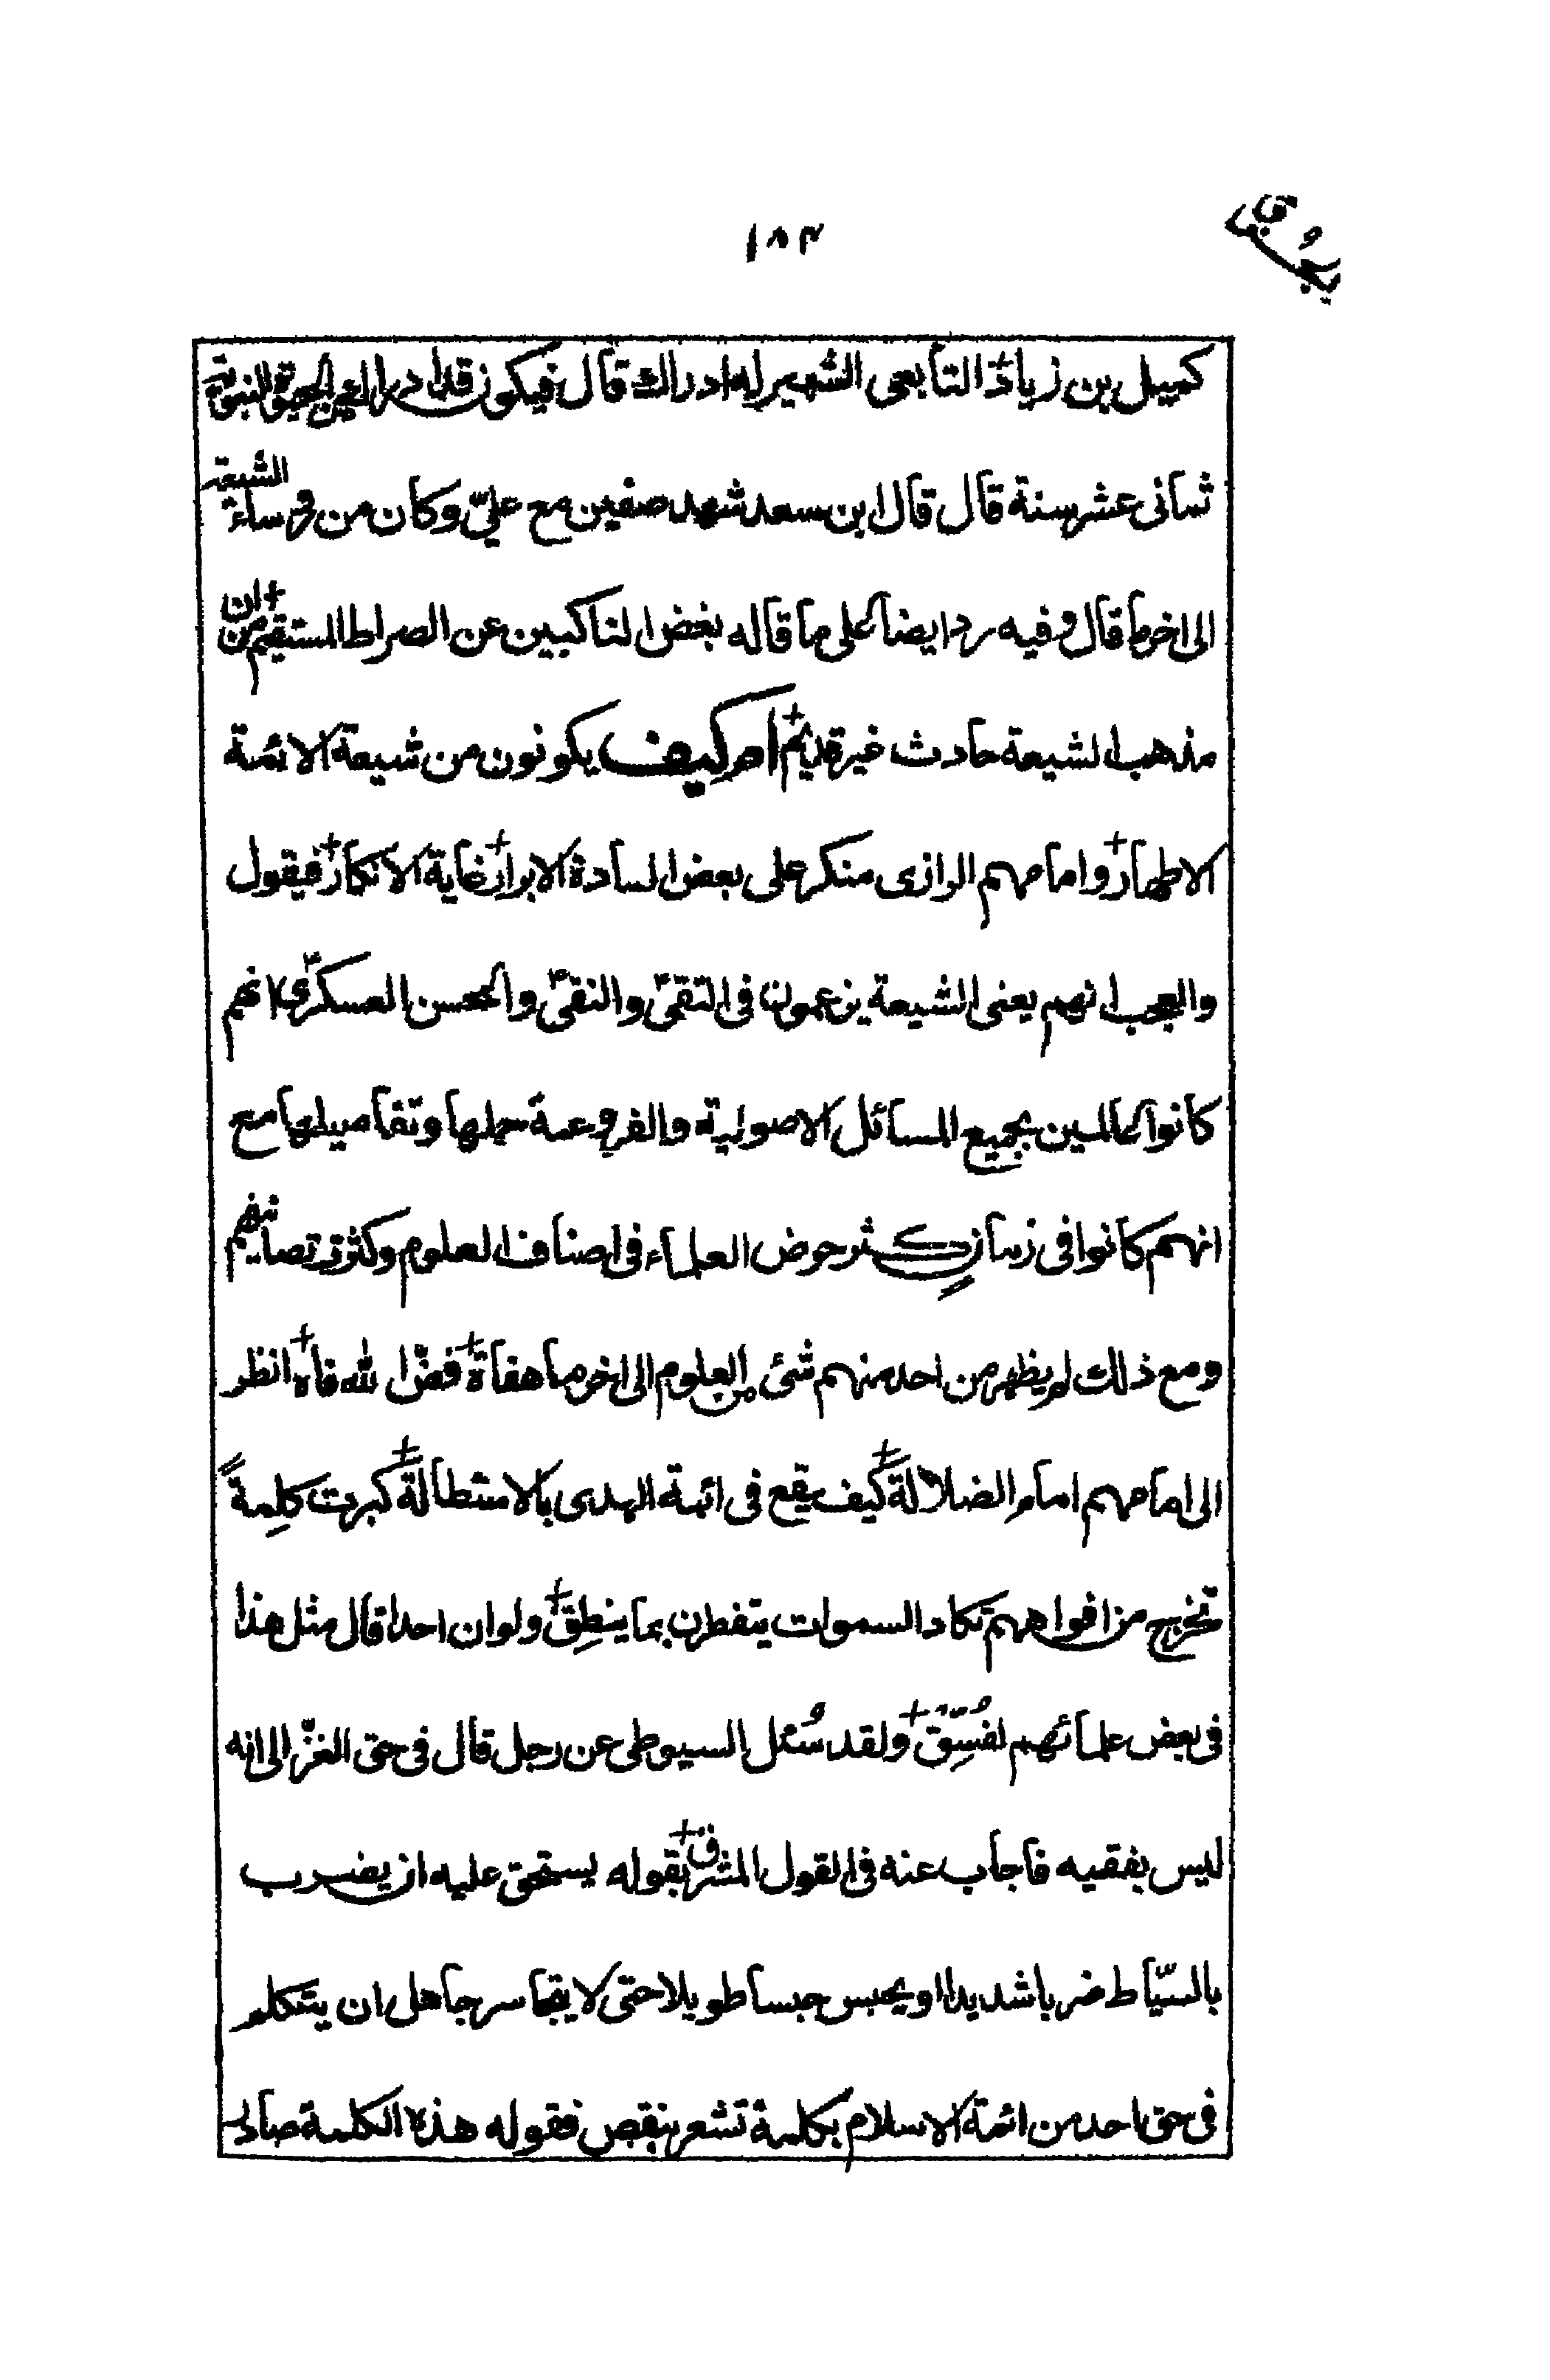 ١٨٣
كميل بن زياد التابعى الشهير له ادراك قال فيكون قد ادرك من الحيوة النبوية
ثمانى عشر سنة قال قال ابن سعد شهد صفين مع علىّ وكان من رؤساء الشيعة
الى اخر ما قال وفيه رد ايضا على ما قاله بعض الناكبين عن الصراط المستقيم من ان
مذهب الشيعة حادث غير قديم ام كيف يكونون من شيعة الائمة
الاطهار وامامهم الرازى منكر على بعض السادة الابرار غاية الانكار فيقول
والعجب انهم يعنى الشيعة يزعمون فى التقىّ والنقىّ والحسن العسكرىّ انهم
كانوا عالمين بجميع المسائل الاصولية والفروعية جملها وتفاصيلها مع
انهم كانوا فى زمان كثر خوض العلماء فى اصناف العلوم وكثرت تصانيفهم
ومع ذلك لم يظهر من احد منهم شئ من العلوم الى اخر ما هفاة فضّ الله فاه انظر
الى امامهم امام الضلالة كيف يقع فى ائمة الهدى بالاستطالة كبرت كلِمةً
تخرج من افواههم تكاد السموات يتفطرن بما ينطِق ولو ان احدا قال مثل هذا
فى بعض علمائهم لفُسِّق ولقد سُئل السيوطى عن رجل قال فى حق الغزّالى انه
ليس بفقيه فاجاب عنه فى القول المشرق بقوله يستحق عليه ان يضرب
بالسيّاط ضربا شديدا او يحبس حبسا طويلا حتى لا يتجاسر جاهل ان يتكلم
فى حق احد من ائمة الاسلام بكلمة تشعر بنقص فقوله هذه الكلمة صادر